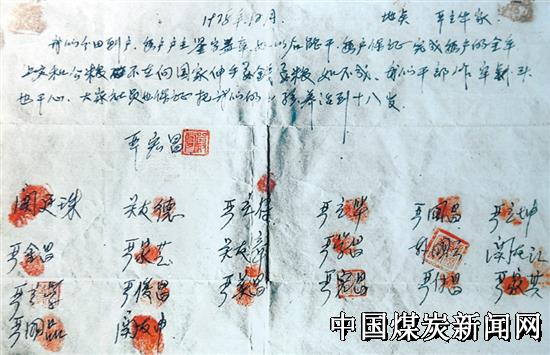 1978年12月 地点 严立华家
我们分田到户，每户户主签字盖章，如以后能干，每户保证完成每户的全年
上交和公粮 不在向国家伸手要钱要粮，如不成，我们干部作牢刹头
也干心，大家社员也保证把我们的小孩养活到十八岁
严宏昌
关廷珠 关友德 严立符 严立华 严国昌 严立坤
严金昌 严家芝 关友章 严学昌 韩国云 关友江
严立学 严俊昌 严美昌 严宏昌 严付昌 严家其
严国品 关友申
中国煤炭新闻网